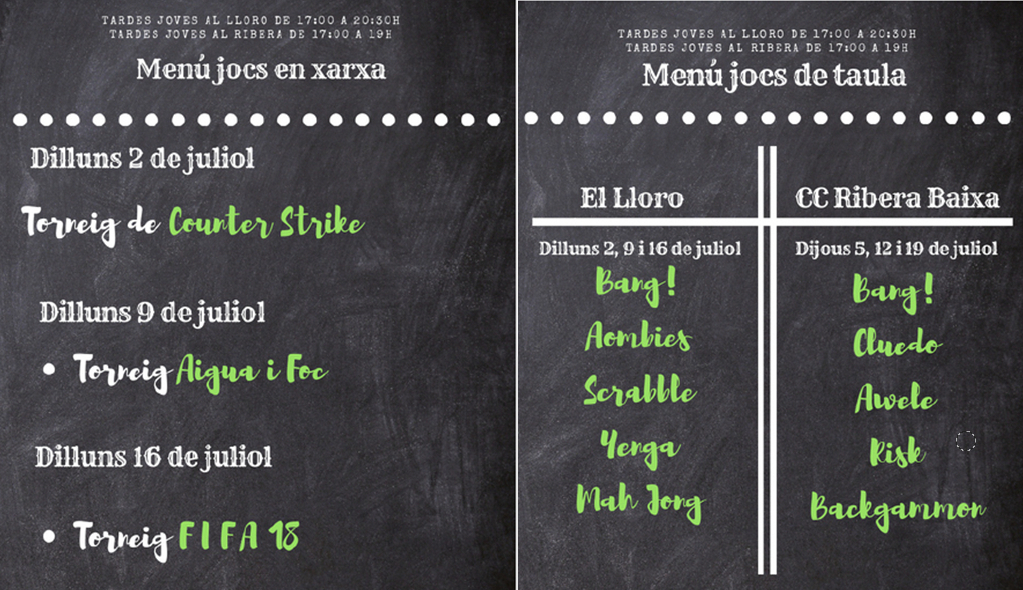 TARDES JOVES AL LLORO DE 17:00 A 20:30H
TARDES JOVES AL RIBERA DE 17:00 A 19H
Menú jocs en xarxa
Dilluns 2 de juliol
Torneig de Counter Strike
Dilluns 9 de juliol
• Torneig Aigua i Foc
Dilluns 16 de juliol
• Torneig FIFA 18
TARDES JOVES AL LLORO DE 17:00 A 20:30H
TARDES JOVES AL RIBERA DE 17:00 A 19H
Menú jocs de taula
El Lloro
Dilluns 2, 9 i 16 de juliol
Bang!
Aombies
Scrabble
Yenga
Mah Jong
CC Ribera Baixa
Dijous 5, 12 i 19 de juliol
Bang!
Cluedo
Awele
Risk
Backgammon